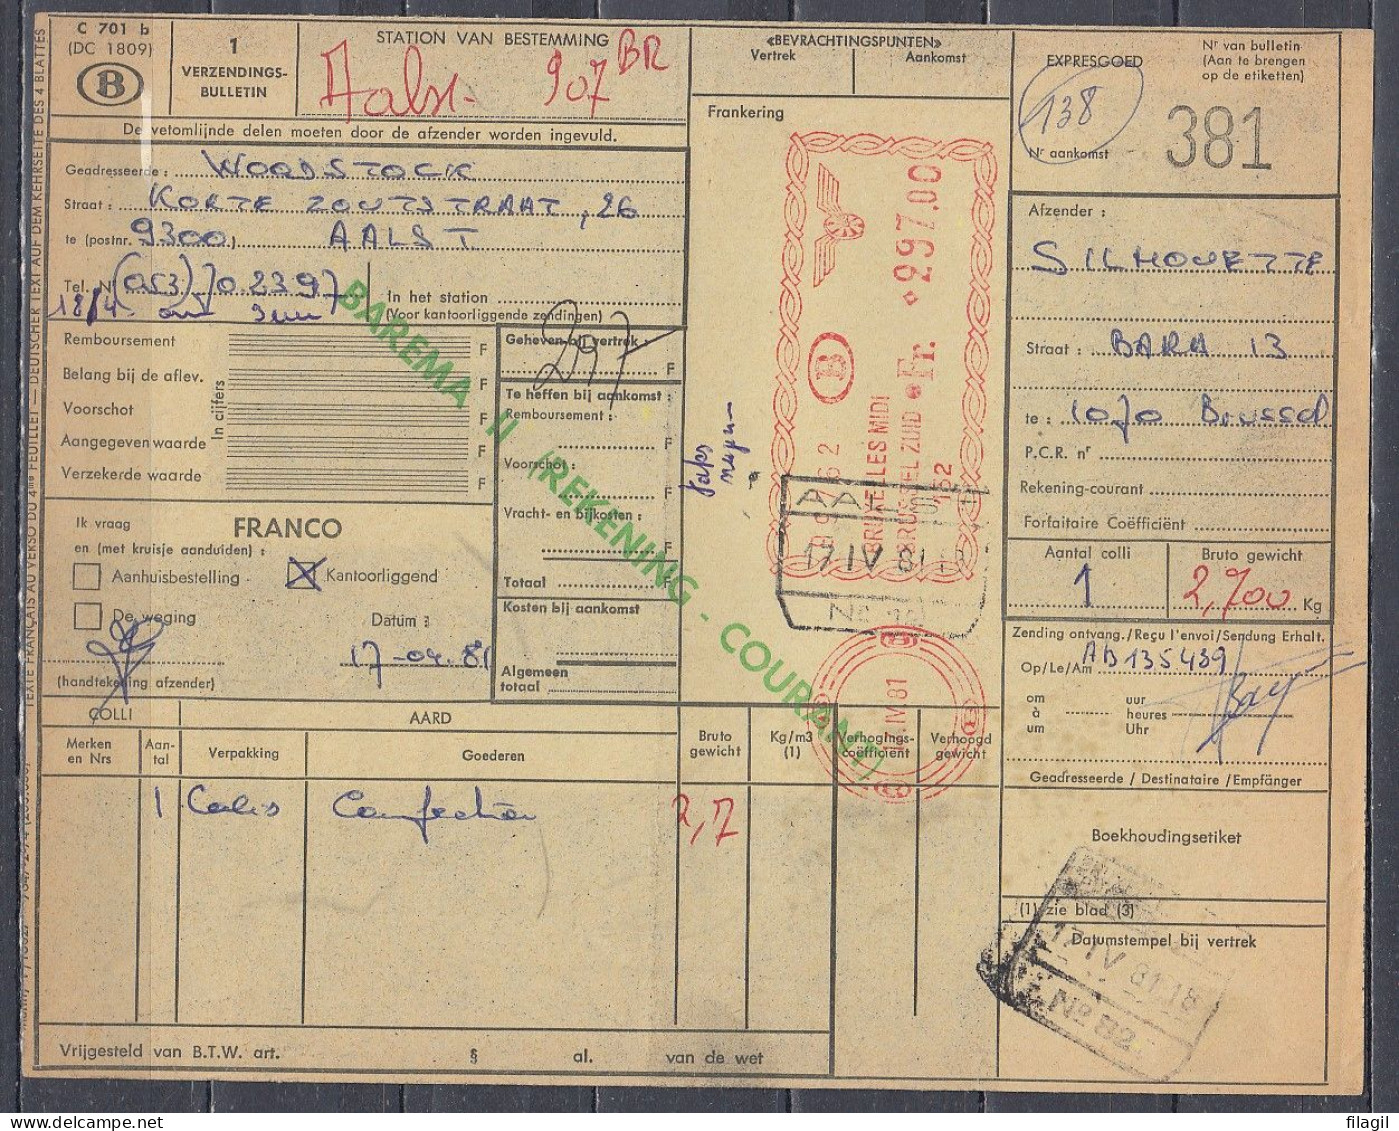 C 701 b
(DC 1809)
B
1
VERZENDINGS-
BULLETIN
STATION VAN BESTEMMING
Aalst. 907 BR
«BEVRACHTINGSPUNTEN»
Vertrek Aankomst
EXPRESGOED
Nr van bulletin
(Aan te brengen
op de etiketten)
138
381
Nr aankomst
De vetomlijnde delen moeten door de afzender worden ingevuld.
Geadresseerde : WOODSTOCK
Straat : KORTE ZOUTSTRAAT, 26
te (postnr. 9300) AALST
Tel. Nr (053) 702397
18/4
In het station
(Voor kantoorliggende zendingen)
BAREMA II (REKENING - COURANT)
Remboursement F
Belang bij de aflev. F
Voorschot F
Aangegeven waarde F
Verzekerde waarde F
In cijfers
Geheven bij vertrek :
297 F
Te heffen bij aankomst :
Remboursement :
F
Voorschot :
F
Vracht- en bijkosten :
F
Totaal F
Kosten bij aankomst
Algemeen
totaal
Ik vraag FRANCO
en (met kruisje aanduiden) :
Aanhuisbestelling Kantoorliggend
De weging Datum :
17-04.81
(handtekening afzender)
Frankering
297.00
Fr.
B
BRUXELLES MIDI
BRUSSEL ZUID
152
AALST
17 IV 81
17.IV.81
Afzender :
SILHOUETTE
Straat : BARA 13
te : 1070 Brussel
P.C.R. nr
Rekening-courant
Forfaitaire Coëfficiënt
Aantal colli Bruto gewicht
1 2,700 Kg
Zending ontvang./Reçu l'envoi/Sendung Erhalt.
Op/Le/Am AD135439
om uur
à heures
um Uhr
Geadresseerde / Destinataire / Empfänger
Boekhoudingsetiket
(1) zie blad (3)
Datumstempel bij vertrek
17 IV 81 18
No 82
COLLI AARD
Merken
en Nrs
Aan-
tal
Verpakking Goederen
Bruto
gewicht
Kg/m3
(1)
Verhogings-
coëfficiënt
Verhoogd
gewicht
1 Colis Confection 2,7
Vrijgesteld van B.T.W. art. § al. van de wet
TEXTE FRANÇAIS AU VERSO DU 4me FEUILLET — DEUTSCHER TEXT AUF DEM KEHRSEITE DES 4 BLATTES